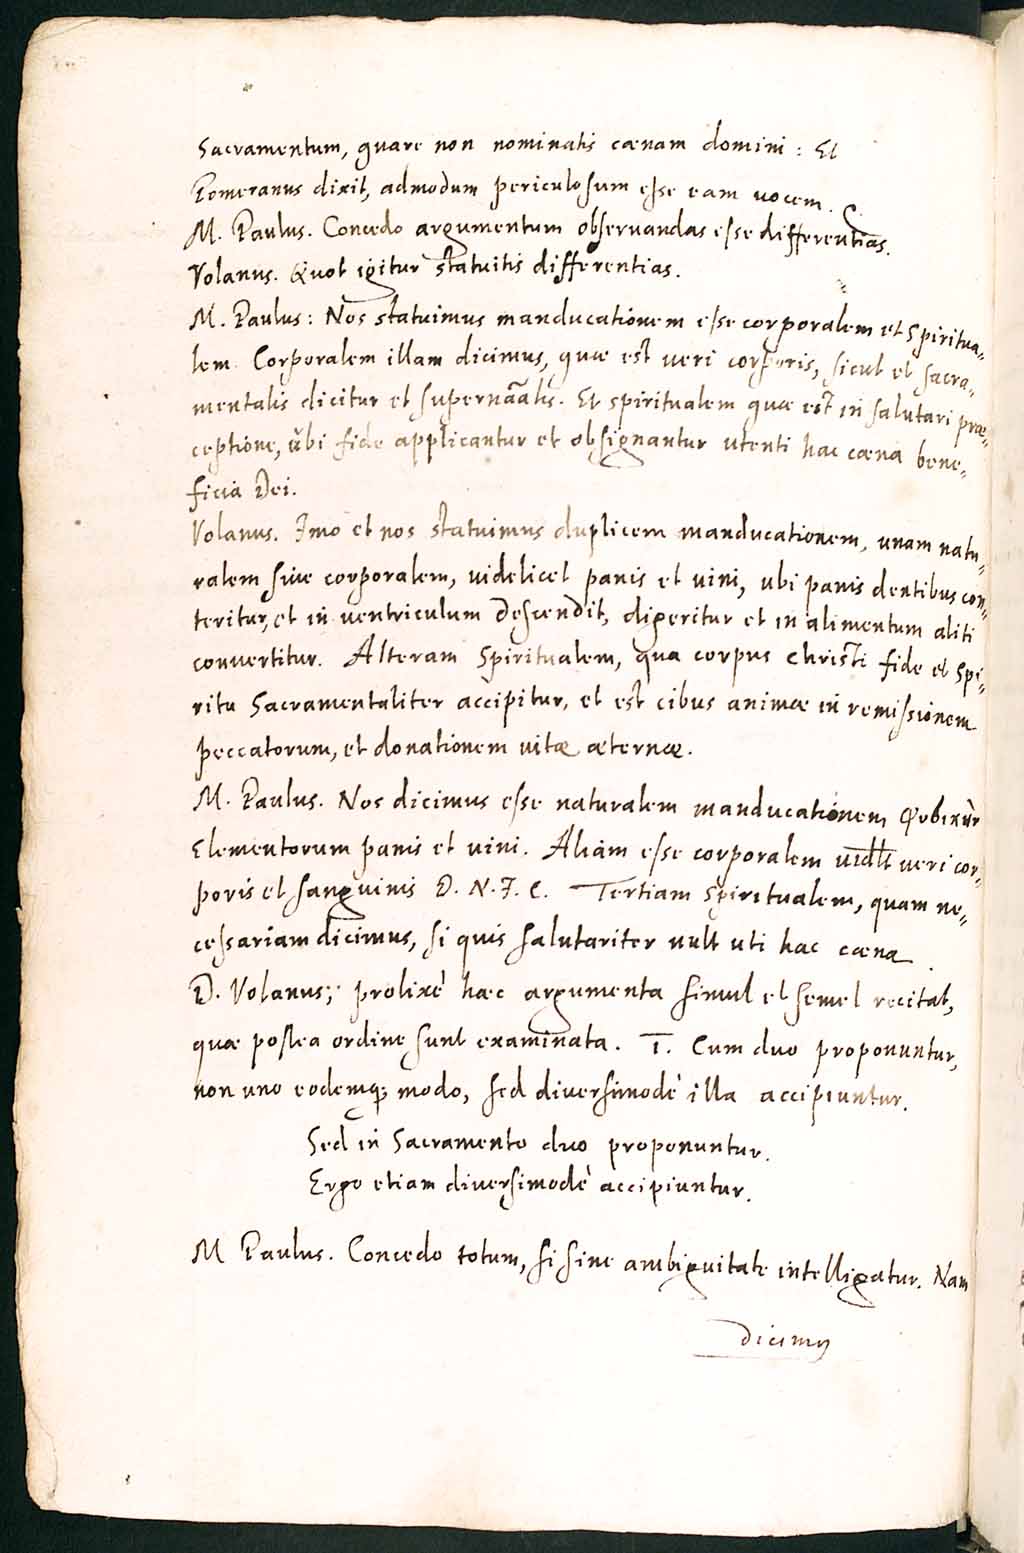 Sacramentum, quare non nominatis cœnam domini: Et
Pomeranus dixit, admodum periculosum esse eam vocem.
M. Paulus. Concedo argumentum observandas esse differentias.
Volanus. Quot igitur statuitis differentias.
M. Paulus: Nos statuimus manducationem esse corporalem et Spiritua-
lem. Corporalem illam dicimus, quæ est veri corporis, sicut et sacra-
mentalis dicitur et supernāalis. Et spiritualem quæ est in salutari præ-
ceptione, ubi fide applicantur et obsignantur utenti hac cœna bene-
ficia Dei.
Volanus. Imo et nos statuimus duplicem manducationem, unam natu-
ralem sive corporalem, videlicet panis et vini, ubi panis dentibus con-
teritur, et in ventriculum descendit, digeritur et in alimentum aliti
convertitur. Alteram Spiritualem, qua corpus Christi fide et Spi-
ritu Sacramentaliter accipitur, et est cibus animæ in remissionem
peccatorum, et donationem vitæ æternæ.
M. Paulus. Nos dicimus esse naturalem manducationem
Elementorum panis et vini. Aliam esse corporalem vidlt veri cor-
poris et sanguinis D. N. J. C. Tertiam Spiritualem, quam ne-
cessariam dicimus, si quis salutariter vult uti hac cœna.
D. Volanus; prolixè hæc argumenta simul et semel recitat,
quæ postea ordine sunt examinata. I. Cum duo proponuntur,
non uno eodemq; modo, sed diversimodè illa accipiuntur.
Sed in Sacramento duo proponuntur.
Ergo etiam diversimodè accipiuntur.
M Paulus. Concedo totum, si sine ambiguitate intelligatur. Nam
dicimus